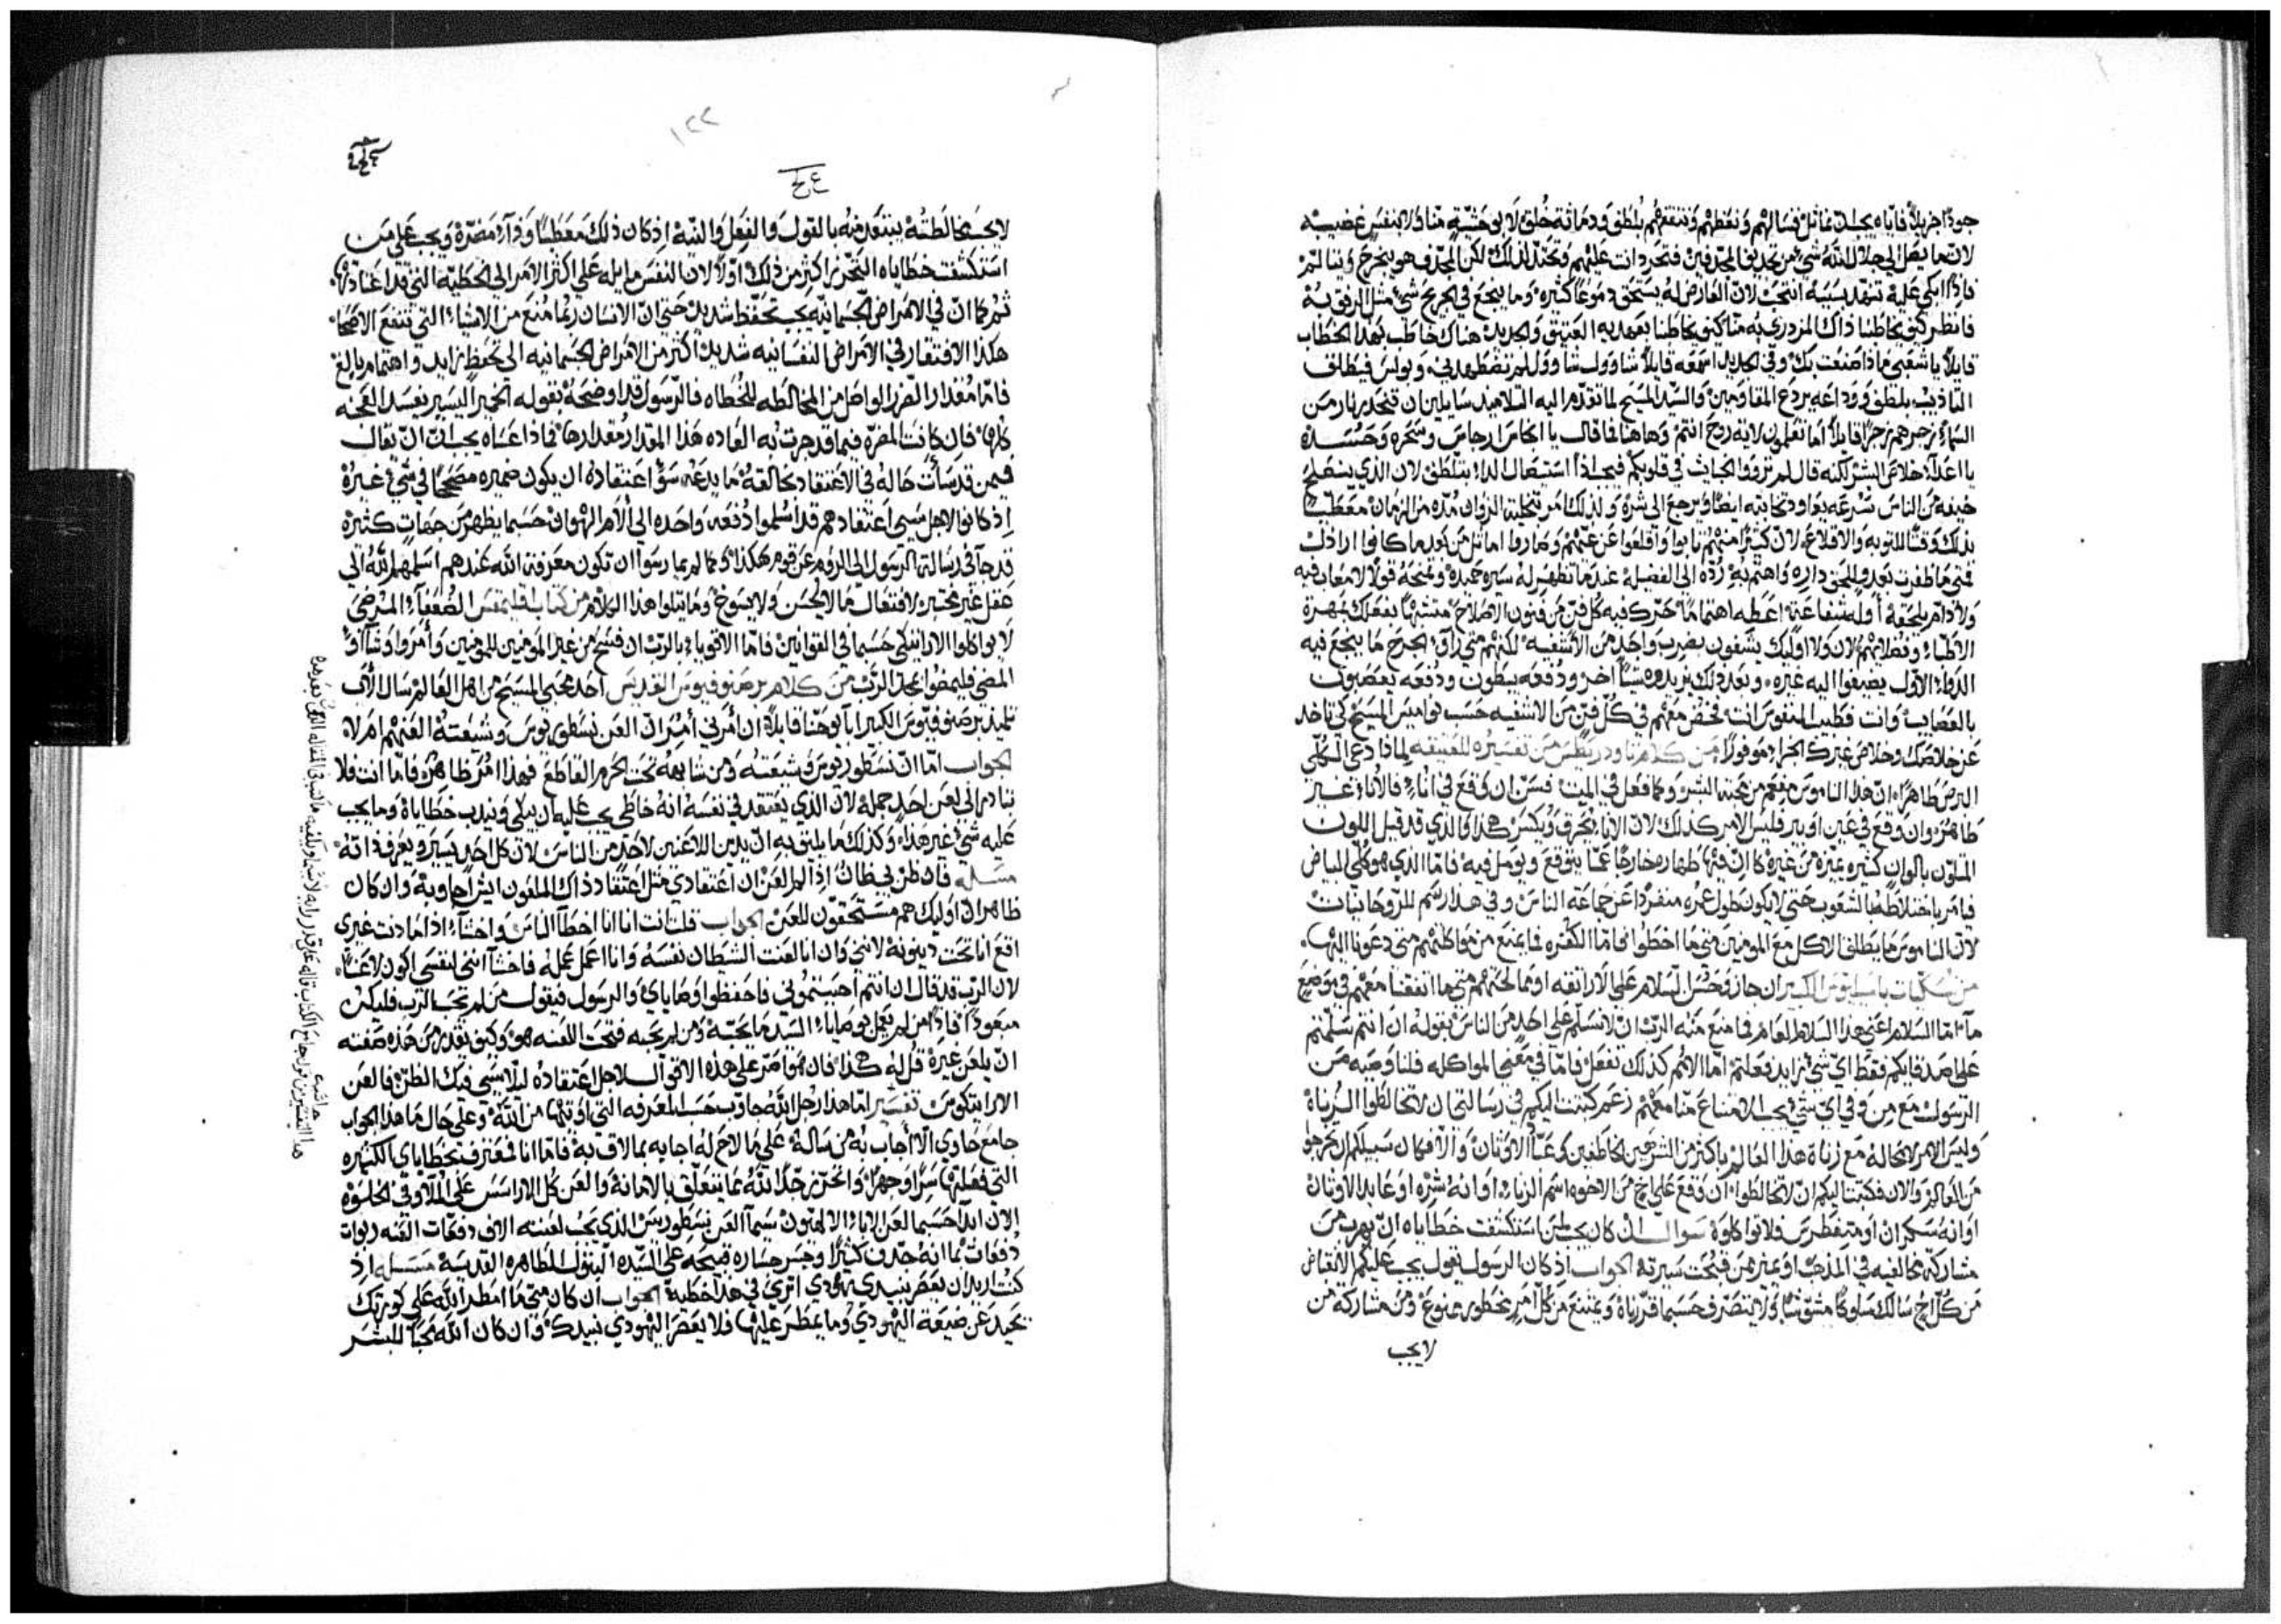 جودًا جزيلاً فاياه يجب ان نماثل فنسالهم ونعظهم وننفعهم بلطف ودماثة خلق لا بوحشية منا ولا بنفس غضبيه
لان ما يصل الى جلال الله شي من تجديف المجدفين فتحرد انت عليهم وتحتد لذلك لكن المجدف هو ينجرح وينالم
فاذًا ابكي عليه تنهد بسببه انتحب لان العارض له يستحق دموعًا كثيره وما ينجع في الجريح شي مثل الرفق به
فانظر كيف يخاطبنا ذاك المزدري به منا كيف يخاطبنا بعهديه العتيق والجديد هناك خاطب بهذا الخطاب
قايلاً يا شعبي ماذا صنعت بك وفي الجديد اسمعه قايلاً شاوول شاوول لم تضطهدني وبولس فيطلق
التاديب بلطف ووداعه يردع المقاومين والسيد المسيح لما تقدم اليه التلاميذ سايلين ان تنحدر نار من
السماء زجرهم زجرًا قايلاً اما تعلمون لاية ريح انتم وهاهنا فما قال يا انكاس ارجاس وسحره وحسده
يا اعداء خلاص البشر لكنه قال لم ترووا الخبايث في قلوبكم فيجب اذًا استيصال الداء بتلطف لان الذي ينصلح
خيفه من الناس سرعه يعاود تخانيه ايضًا ويرجع الى شره ولذلك امر بتخلية الزوان مده من الزمان معطيًا
بذلك وقتًا للتوبه والاقلاع لان كثيرًا منهم تابوا واقلعوا عن غيهم وصاروا اماثل من بعد ما كانوا اراذل
فمتى ما ظفرت بعدو للحق داره واهتم به رده الى الفضيله عندما تظهر له سيره حميده وتمنحه قولاً لا معاب فيه
ولا ذام يلحقه اوله شفاعة اعطه اهتمامًا حرك فيه كل فن من فنون الاصلاح متشبهًا بفعلك بمهرة
الاطباء وفضلايهم لان ولا اوليك يشفون بضرب واحد من الاشفيه لكنهم متى راوا الجرح ما ينجع فيه
الدواء الاول يضيفوا اليه غيره وبعد ذلك يزيدوه شيئًا اخر ودفعه يبطون ودفعه يعصبون
بالعصايب وانت فطبيب النفوس انت فخض معهم في كل فن من الاشفيه حسب نواميس المسيح كي تاخذ
عن خلاصك وخلاص غيرك الجزاء موفورًا من كلام تاودريطس من تفسيره للعتيقه لماذا دعى الكلي
البرص طاهرًا ان هذا الناموس مفعم من محبة البشر وكما فعل في الميت فسن ان وقع في اناء فالاناء غير
طاهر وان وقع في عين او بير فليس الامر كذلك لان الاناء يحرق ويكسر هكذا والذي قد قبل اللون
المتلون بالوان كثيره يميزه من غيره كان فيها طهاره خارجًا عما يتوقع ويومل فيه فاما الذي هو كلي البياض
فامر باختلاطه بالشعوب حتى لا يكون طول عمره منفردًا عن جماعة الناس وفي هذا رسم للروحانيات
لان الناموس ما يطلق الاكل مع المومنين متى ما اخطوا فاما الكفره فما يمنع من مواكلتهم متى دعونا اليها
من نسكيات باسيليوس الكبير ان جاز وحسن السلام على الاراتقه او مجالستهم متى ما اتفقنا معهم في موضع
ما اما السلام اعني هذا السلام العام فما منع منه الرب ان لا نسلم على احد من الناس بقوله ان انتم سلمتم
على اصدقايكم فقط اي شي زايد فعلتم اما الامم كذلك تفعل فاما في معنى المواكله فلنا وصيه من
الرسول مع من وفي اي شي يجب الامتناع منا معهم زعم كتبت اليكم في رسالتي ان لا تخالطوا الزناة
وليس الامر لا محاله مع زناة هذا العالم باكثر من الشرهين الخاطفين وعباد الاوثان والا فكان سبيلكم ان تخرجوا
من العالم والان فكتبت اليكم ان لا تخالطوا ان وقع على اخ من الاخوه اسم الزناء او انه شره او عابد الاوثان
او انه سكران او متغطرس فلا تواكلوه سوال ان كان يجب لمن استكشفت خطاياه ان يهرب من
مشاركة مخالفيه في المذهب او غيرهم ممن قبحت سيرته الجواب اذ كان الرسول يقول يجب عليكم الانقباض
من كل اخ سالك سلوكًا مشوشًا ولا يتصرف حسبما قررناه ويمتنع من كل امر محظور ممنوع ومن مشاركة من
لا يجب
١٢٢
لا يجب مخالطته يبتعد منه بالقول والفعل والنية اذ كان ذلك معطبًا وفادة مضرة ويجب على من
استكشفت خطاياه التحرز اكثر من ذلك اولاً لان النفس مايله على اكثر الامر الى الخطيه التي قد اعتادتها
ثم كما ان في الامراض الجسمانيه يجب تحفظ شديد حتى ان الانسان ربما منع من الاشياء التي تنفع الاصحاء
هكذا الافتقار في الامراض النفسانيه شديد اكثر من الامراض الجسمانيه الى تحفظ زايد واهتمام بالغ
فاما مقدار الضرر الواصل من المخالطه للخطاه فالرسول قد اوضحه بقوله الخمير اليسير يفسد العجنه
كلها فان كانت المضره فيما قد جرت به العاده هذا المقدار مقدارها فماذا عساه يجب ان يقال
فيمن قد سات حاله في الاعتقاد بخالقه ما يدعه سو اعتقاده ان يكون ضميره مصححًا في شي غيره
اذ كانوا لاجل سي اعتقادهم قد اسلموا دفعه واحده الى الام الهوان حسبما يظهر من جهات كثيره
قد جا في رسالة الرسول الى الروم عن قوم هكذا وكما لم يما رسوا ان تكون معرفة الله عندهم اسلمهم الله الى
عقل غير مختبر لافتعال ما لا يحسن ولا يسوغ وما يتلوا هذا الكلام من كتاب اقليمقس الضعفاء المرضى
لا يواكلوا الاراتيكي حسبما في القوانين فاما الاقوياء بالرب ان فسح من غير المومنين للمومنين وامروا وشاوا
المضي فليمضوا بمجد الرب من كلام برصنوفيوس القديس احد محبي المسيح من اهل العالم سال الاب
تلميذ برصنوفيوس الكبير ابا يوحنا قايلاً ان امرني امر ان العن نسطوريوس وشيعته العنهم ام لا
الجواب اما ان نسطوريوس وشيعته ومن شايعه تحت الحرم القاطع فهذا امر ظاهر فاما انت فلا
تبادر الى لعن احد جمله لان الذي يعتقد في نفسه انه خاطي يجب عليه ان يبكي ويندب خطاياه وما يجب
عليه شي غير هذا وكذلك ما يليق به ان يدين اللاعنين لاحد من الناس لان كل احد يسير ويعرف ذاته
مسله فان ظن بي ظان اذا لم العن ان اعتقادي مثل اعتقاد ذاك الملعون ايش اجاوبه وان كان
ظاهر ان اوليك هم مستحقون للعن الجواب قلت انت انا انا اخطا الناس واخشاء اذا ما دنت غيري
اقع انا تحت دينونة لانني وان انا لعنت الشيطان نفسه وانا اعمل عمله فاخشا انني لنفسي اكون لاعنًا
لان الرب قد قال ان انتم احببتموني فاحفظوا وصاياي والرسول فيقول من لم يحب الرب فليكن
مبعودًا فاذًا من لم يعمل بوصاياء السيد ما يحبه ومن لم يحبه فتحت اللعنه هو وكيف يقدر من هذه صفته
ان يلعن غيره قل له هكذا فان هو اصر على هذه الاقوال لاجل اعتقاده ليلا يسي فيك الظن فالعن
الاراتيكوس تفسير اما هذا رجل الله جاوب حسب المعرفه التي اوتيها من الله وعلى حال ما هذا الجواب
جامع حاوي الا اجاب به من ساله على ما لاح له اجابه بما لاق به فاما انا فمعترف بخطاياي الكثيره
التي فعلتها سرًا وجهرًا واتحرز جدًا لله مما يتعلق بالامانة والعن كل الاراسس على الملا وفي الخلوه
الان ابدا حسبما لعن الاباء الالهيون سيما العن نسطوريس الذي يجب لعنته الاف دفعات الفيه ربوات
دفعات بما انه جدف كثيرًا وجسر جساره قبيحه على السيده البتول الطاهره القديسة مسله اذ
كنت اريد ان يعصر نبيدي يهودي اترى في هذا خطيه الجواب ان كان متى ما امطر الله على كورتك
يحيد عن ضيعة اليهودي وما يمطر عليها فلا يعصر اليهودي نبيدك وان كان الله محبًا للبشر
حاشيه